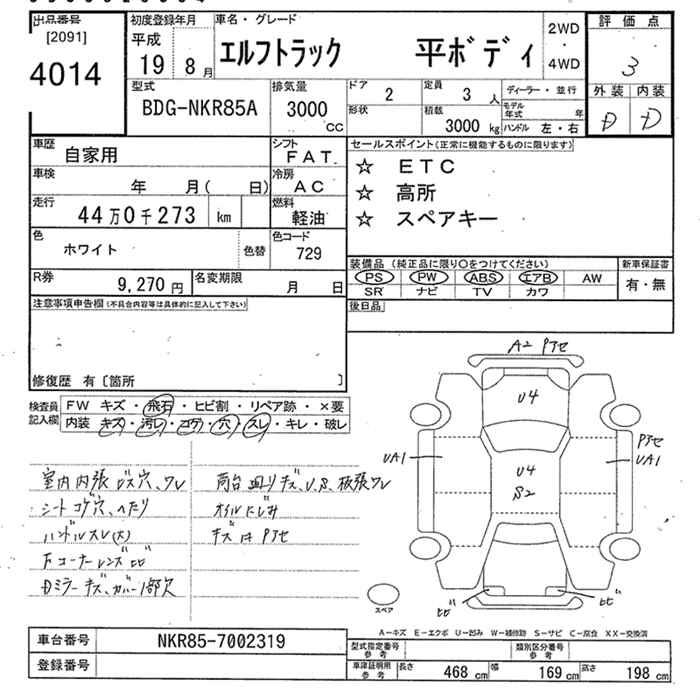 出品番号
[2091]
4014
初度登録年月
平成
19 8月
車名・グレード
エルフトラック 平ボディ
2WD
・
4WD
評価点
3
外装 内装
D D
型式
BDG-NKR85A
排気量
3000
cc
ドア
2
定員
3 人
形状
積載
3000 kg
ディーラー・並行
モデル年式 年
ハンドル 左・右
車歴
自家用
シフト
FAT
車検
年 月( 日)
冷房
AC
走行
44万0千273 km
燃料
軽油
色
ホワイト
色替
色コード
729
R券
9,270円
名変期限
月 日
セールスポイント(正常に機能するものに限ります)
☆ ETC
☆ 高所
☆ スペアキー
装備品(純正品に限り○をつけてください)
PS PW ABS エアB AW
SR ナビ TV カワ
新車保証書
有・無
後日品
注意事項申告欄(不具合内容等は具体的に記入して下さい)
修復歴 有〔箇所 〕
検査員記入欄
FW キズ・飛石・ヒビ割・リペア跡・×要
内装 キズ・汚レ・コゲ・穴・スレ・キレ・破レ
室内内張ビス穴、ワレ
シートコゲ穴、ヘタリ
ハンドルスレ(大)
Fコーナーレンズヒビ
Dミラーキズ、カバー1部欠
荷台廻りキズ、U、S、板張ワレ
オイルにじみ
キズはPアセ
A2 Pアセ
U4
UA1
U4
S2
Pアセ
UA1
ヒビ
ヒビ
スペア
A-キズ E-エクボ U-凹み W-補修跡 S-サビ C-腐食 XX-交換済
車台番号
NKR85-7002319
登録番号
型式指定番号
参考
類別区分番号
参考
車庫証明用
参考
長さ 468 cm 幅 169 cm 高さ 198 cm